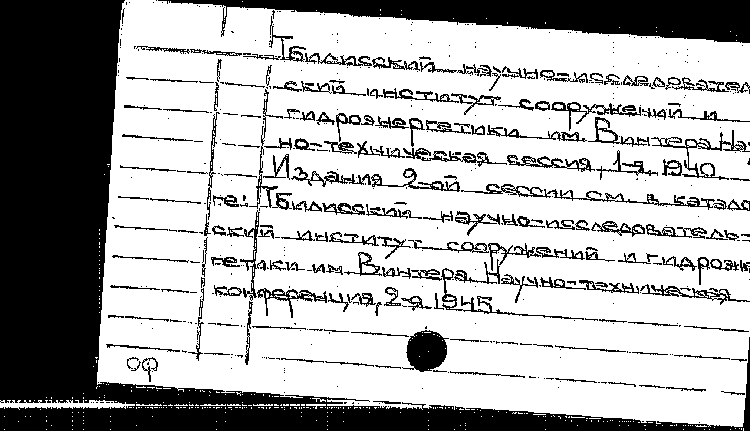 Тбилисский научно-исследовател
ский институт сооружений и
гидроэнергетики им. Винтера. На
но-техническая сессия, 1-я, 1940.
Издания 2-ой сессии см. в катало
ге: Тбилисский научно-исследователь-
ский институт сооружений и гидроэне
гетики им. Винтера. Научно-техническая
конференция, 2-я 1945.
оф